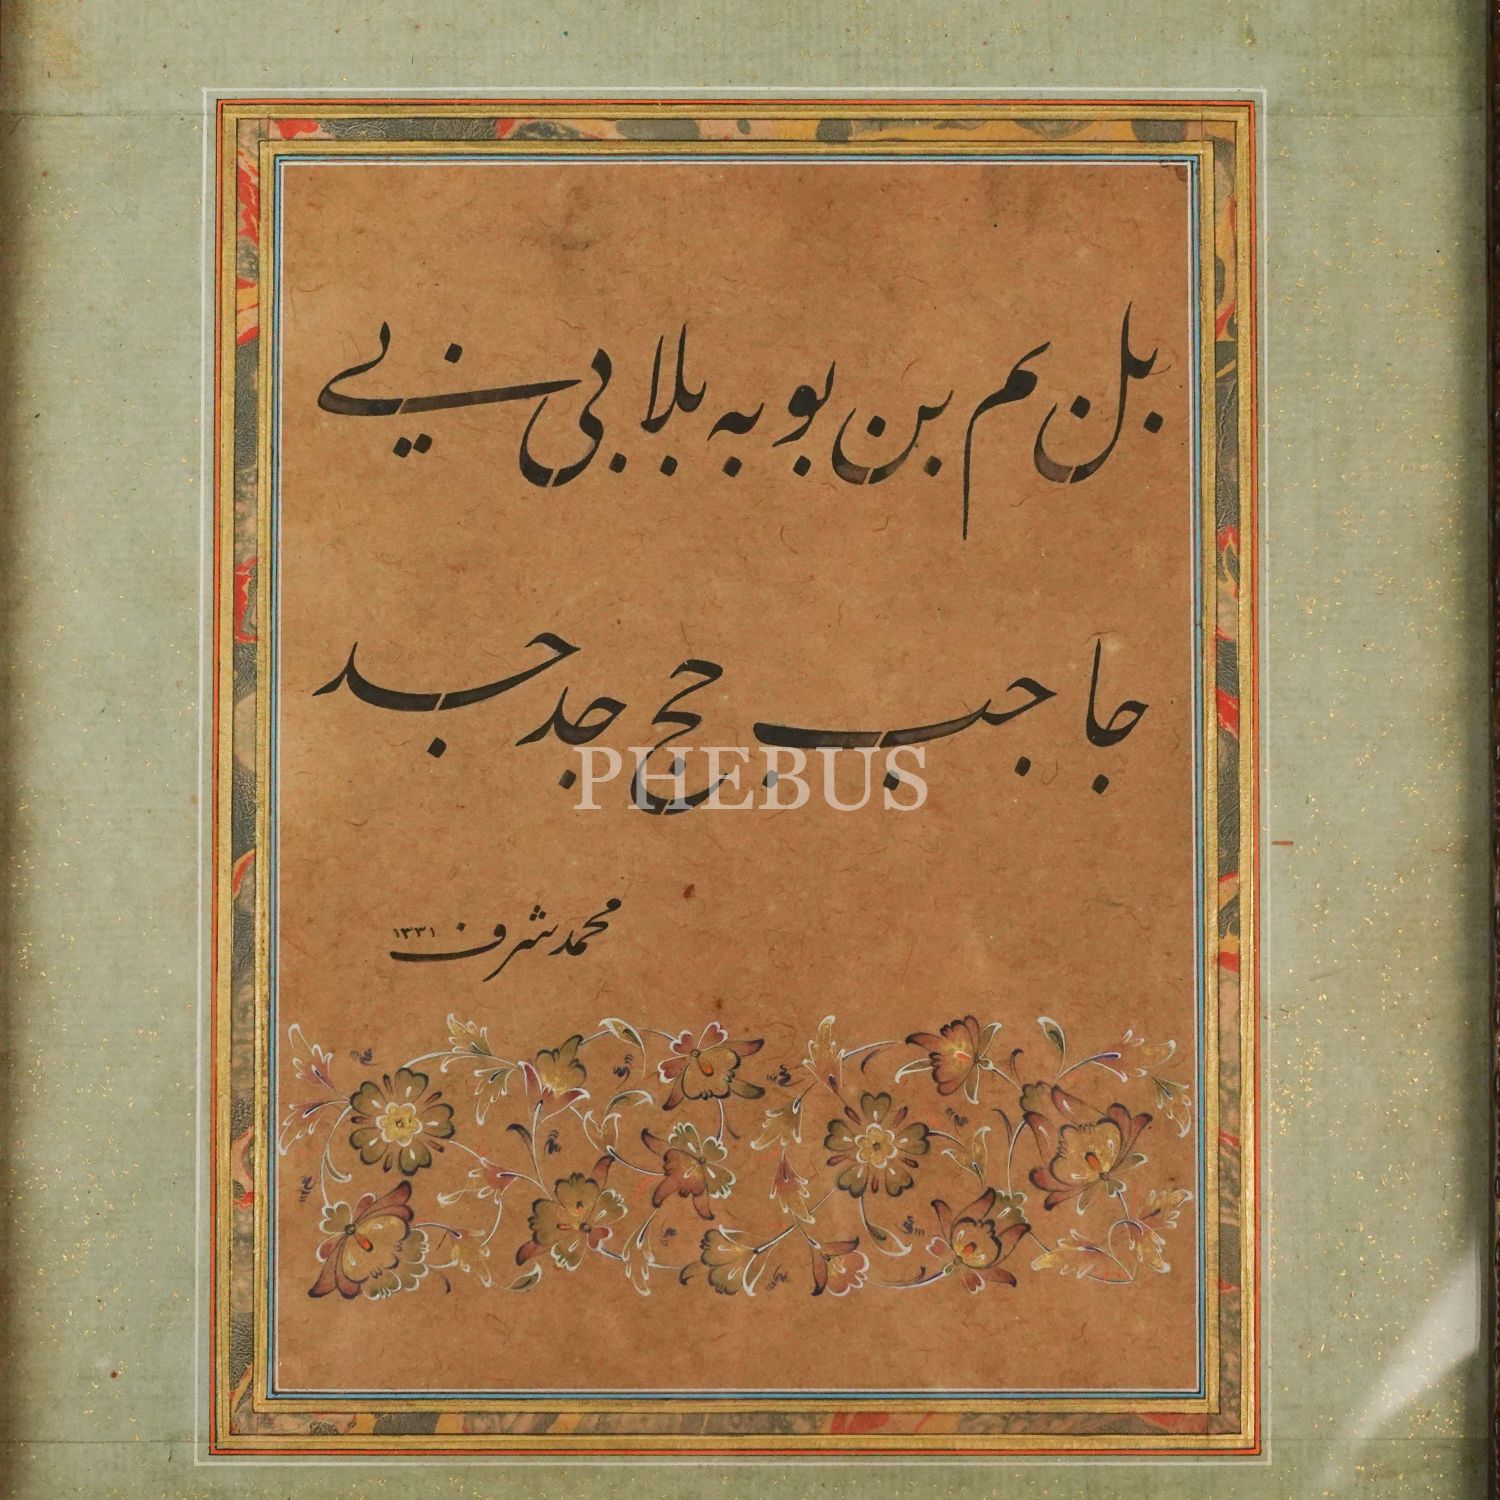 بل بم بن بو به بلا بی بی
جا جب حج جد جد
محمد شرف ١٣٣١
PHEBUS